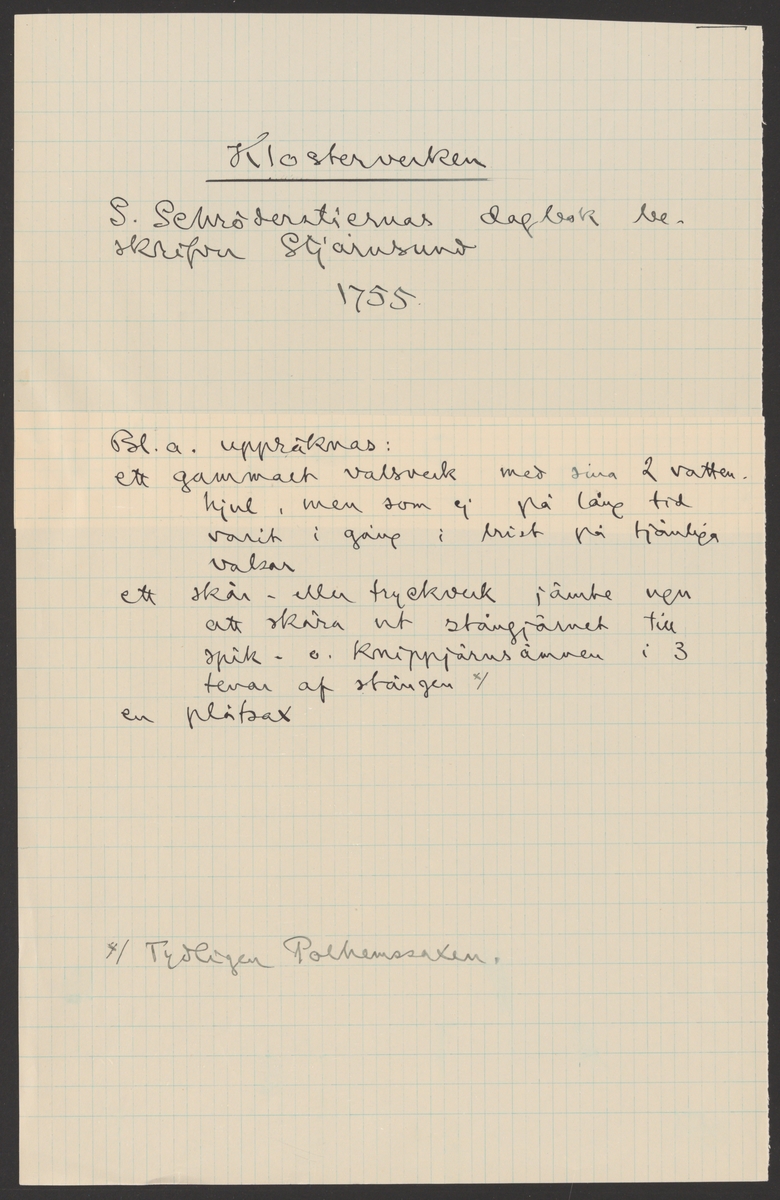 Klosterverken
S. Schröderstiernas dagbok be-
skrifver Stjärnsund
1755.
Bl. a. uppräknas:
ett gammalt valsverk med sina 2 vatten-
hjul, men som ej på lång tid
varit i gång i brist på tjänliga
valsar
ett skär- eller tryckverk jämte ugn
att skära ut stångjärnet till
spik- o. knippjärnsämnen i 3
tenar af stången x/
en plåtsax
x/ Tydligen Polhemssaxen.